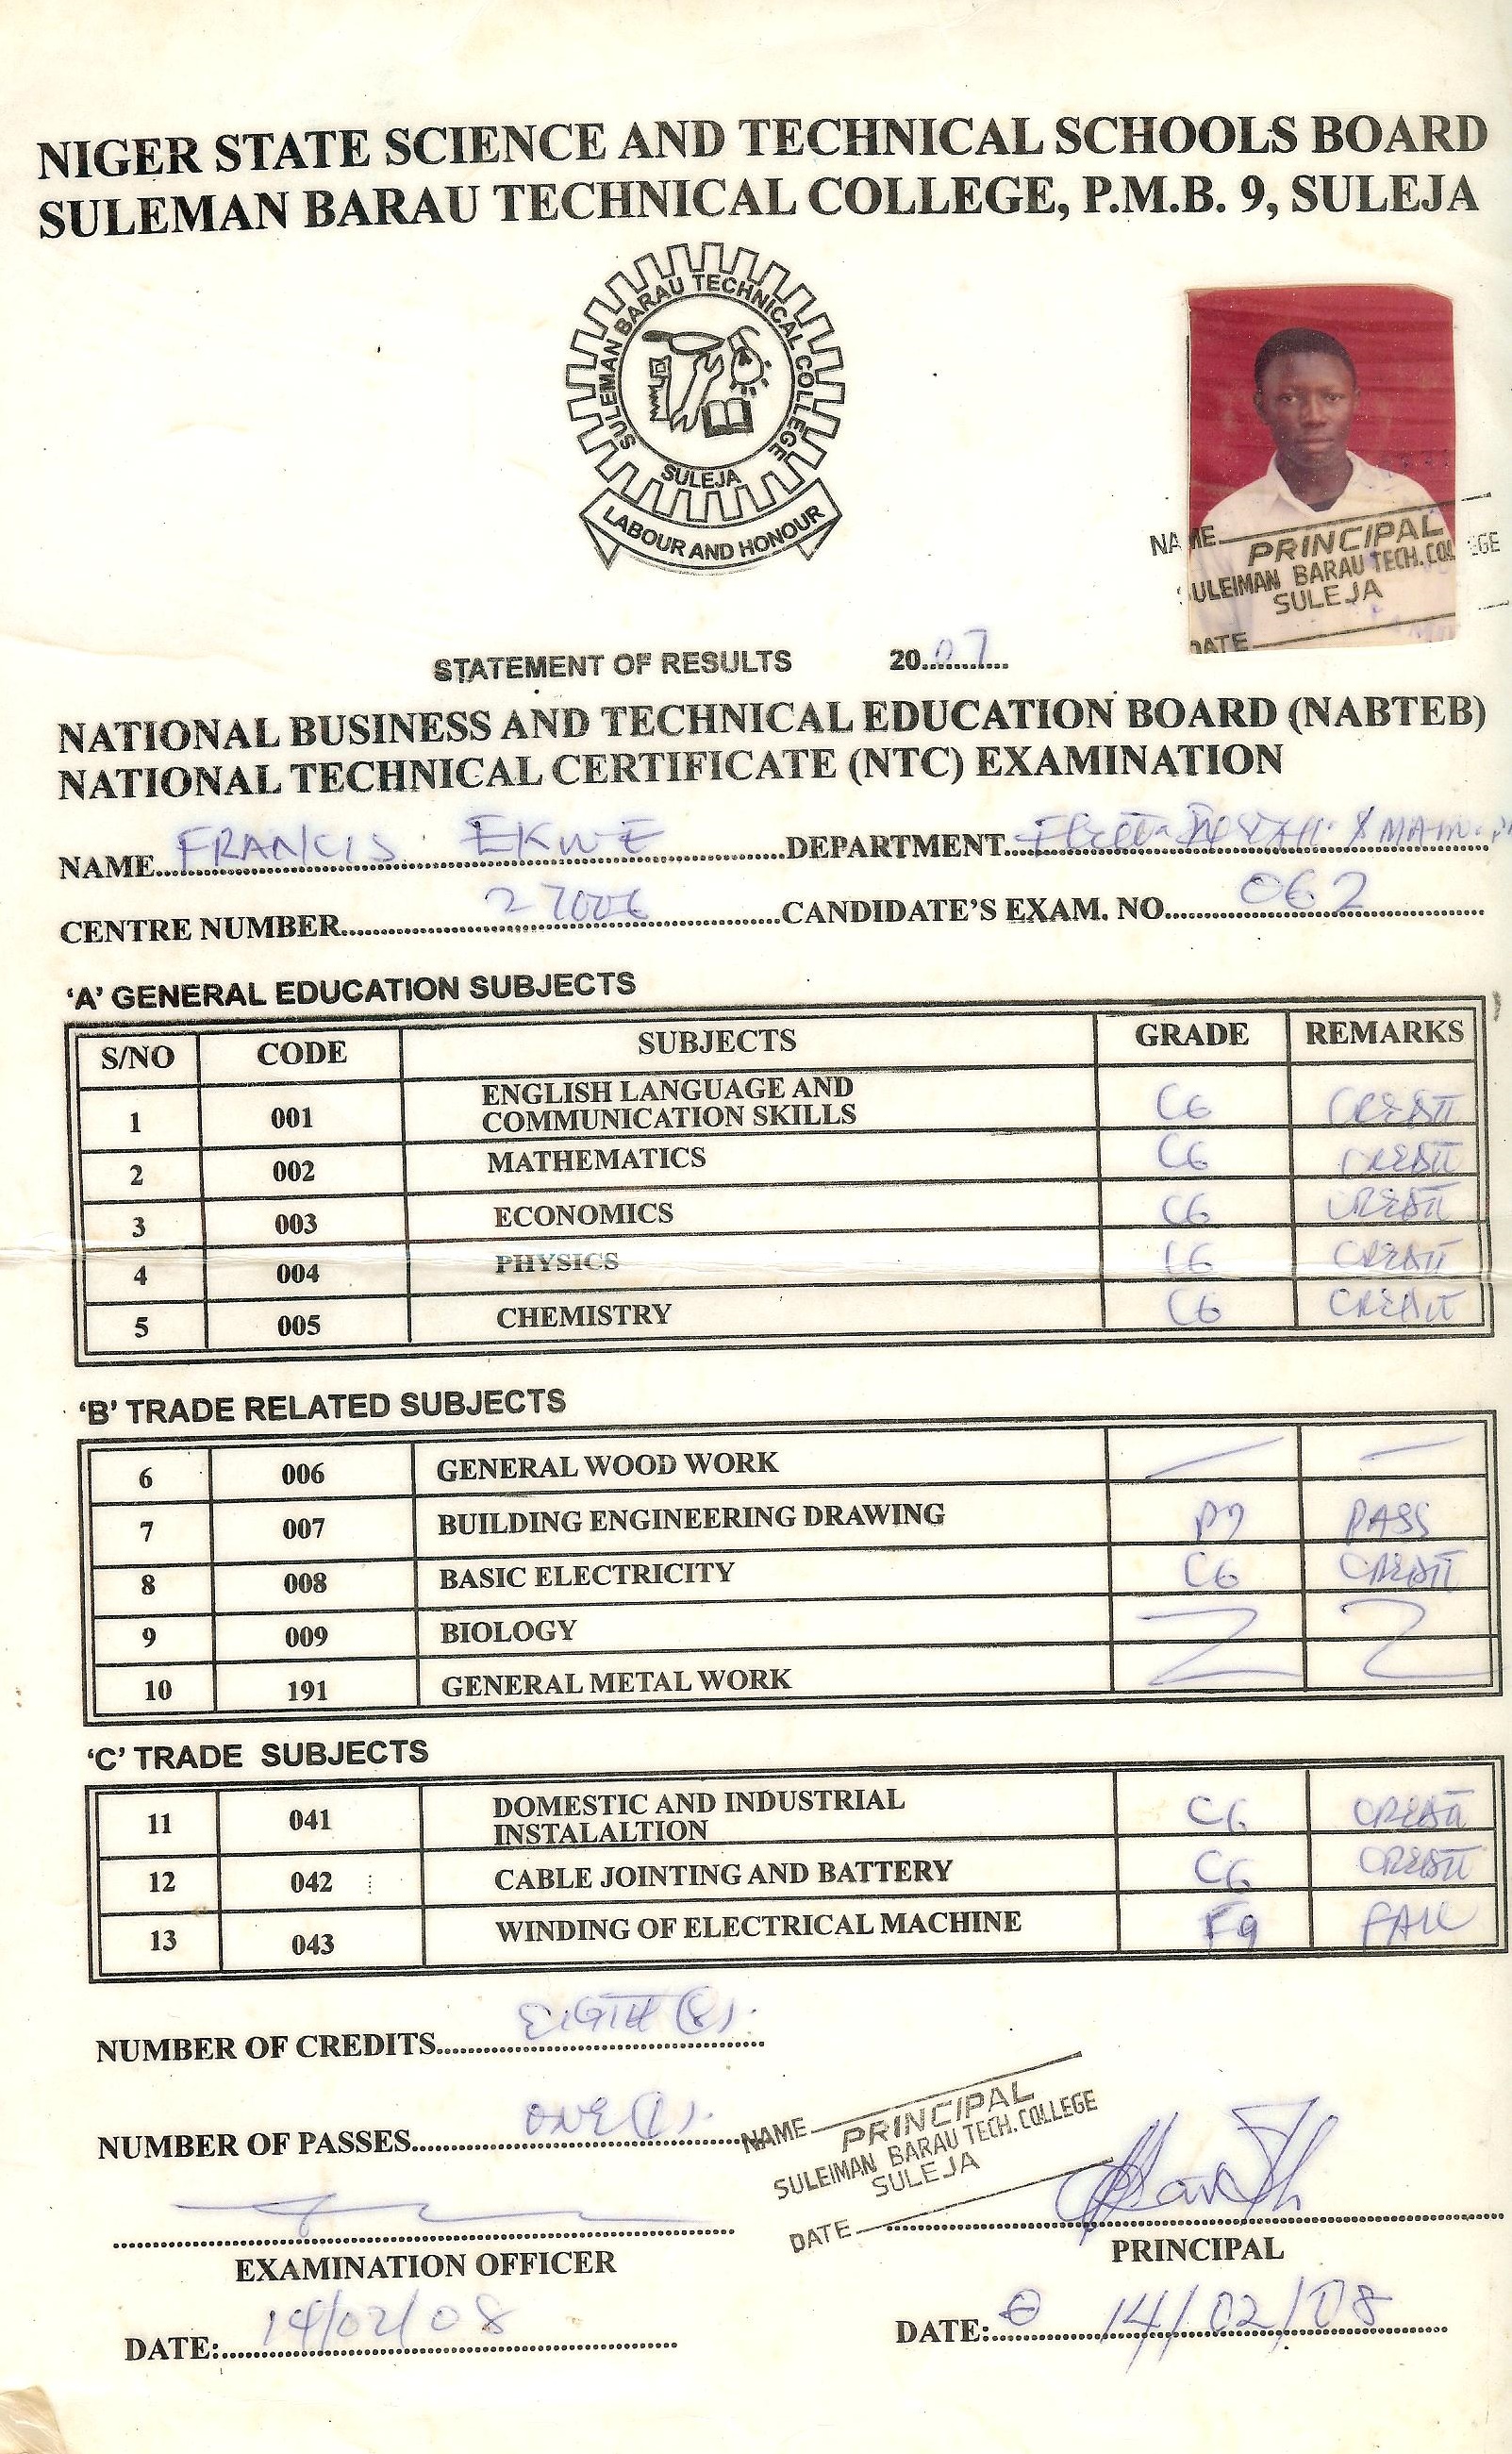 NIGER STATE SCIENCE AND TECHNICAL SCHOOLS BOARD
SULEMAN BARAU TECHNICAL COLLEGE, P.M.B. 9, SULEJA
SULEMAN BARAU TECHNICAL COLLEGE
SULEJA
LABOUR AND HONOUR
NAME
PRINCIPAL
SULEIMAN BARAU TECH. COLLEGE
SULEJA
DATE
STATEMENT OF RESULTS 2007
NATIONAL BUSINESS AND TECHNICAL EDUCATION BOARD (NABTEB)
NATIONAL TECHNICAL CERTIFICATE (NTC) EXAMINATION
NAME FRANCIS EKWE DEPARTMENT
CENTRE NUMBER 27006 CANDIDATE'S EXAM. NO. 062
'A' GENERAL EDUCATION SUBJECTS
S/NO CODE SUBJECTS GRADE REMARKS
1 001 ENGLISH LANGUAGE AND COMMUNICATION SKILLS C6 CREDIT
2 002 MATHEMATICS C6 CREDIT
3 003 ECONOMICS C6 CREDIT
4 004 PHYSICS C6 CREDIT
5 005 CHEMISTRY C6 CREDIT
'B' TRADE RELATED SUBJECTS
6 006 GENERAL WOOD WORK
7 007 BUILDING ENGINEERING DRAWING P7 PASS
8 008 BASIC ELECTRICITY C6 CREDIT
9 009 BIOLOGY
10 191 GENERAL METAL WORK
'C' TRADE SUBJECTS
11 041 DOMESTIC AND INDUSTRIAL INSTALALTION C6 CREDIT
12 042 CABLE JOINTING AND BATTERY C6 CREDIT
13 043 WINDING OF ELECTRICAL MACHINE F9 FAIL
NUMBER OF CREDITS EIGTH (8).
NUMBER OF PASSES ONE (1).
NAME
PRINCIPAL
SULEIMAN BARAU TECH. COLLEGE
SULEJA
DATE
EXAMINATION OFFICER
PRINCIPAL
DATE: 14/02/08
DATE: 14/02/08